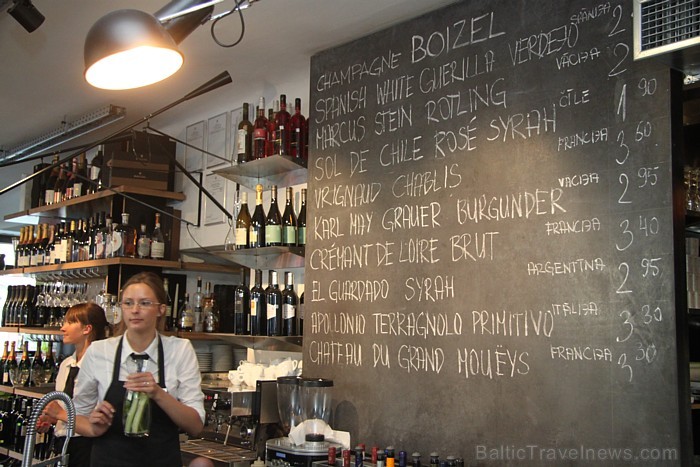 CHAMPAGNE BOIZEL
SPANISH WHITE GUERILLA VERDEJO SPĀNIJA 2
MARCUS STEIN ROTLING VĀCIJA 2
SOL DE CHILE ROSÉ SYRAH ČĪLE 1 90
VRIGNAUD CHABLIS FRANCIJA 3 60
KARL MAY GRAUER BURGUNDER VĀCIJA 2 95
CRÉMANT DE LOIRE BRUT FRANCIJA 3 40
EL GUARDADO SYRAH ARGENTĪNA 2 95
APOLLONIO TERRAGNOLO PRIMITIVO ITĀLIJA 3 30
CHATEAU DU GRAND MOUËYS FRANCIJA 3
BalticTravelnews.com